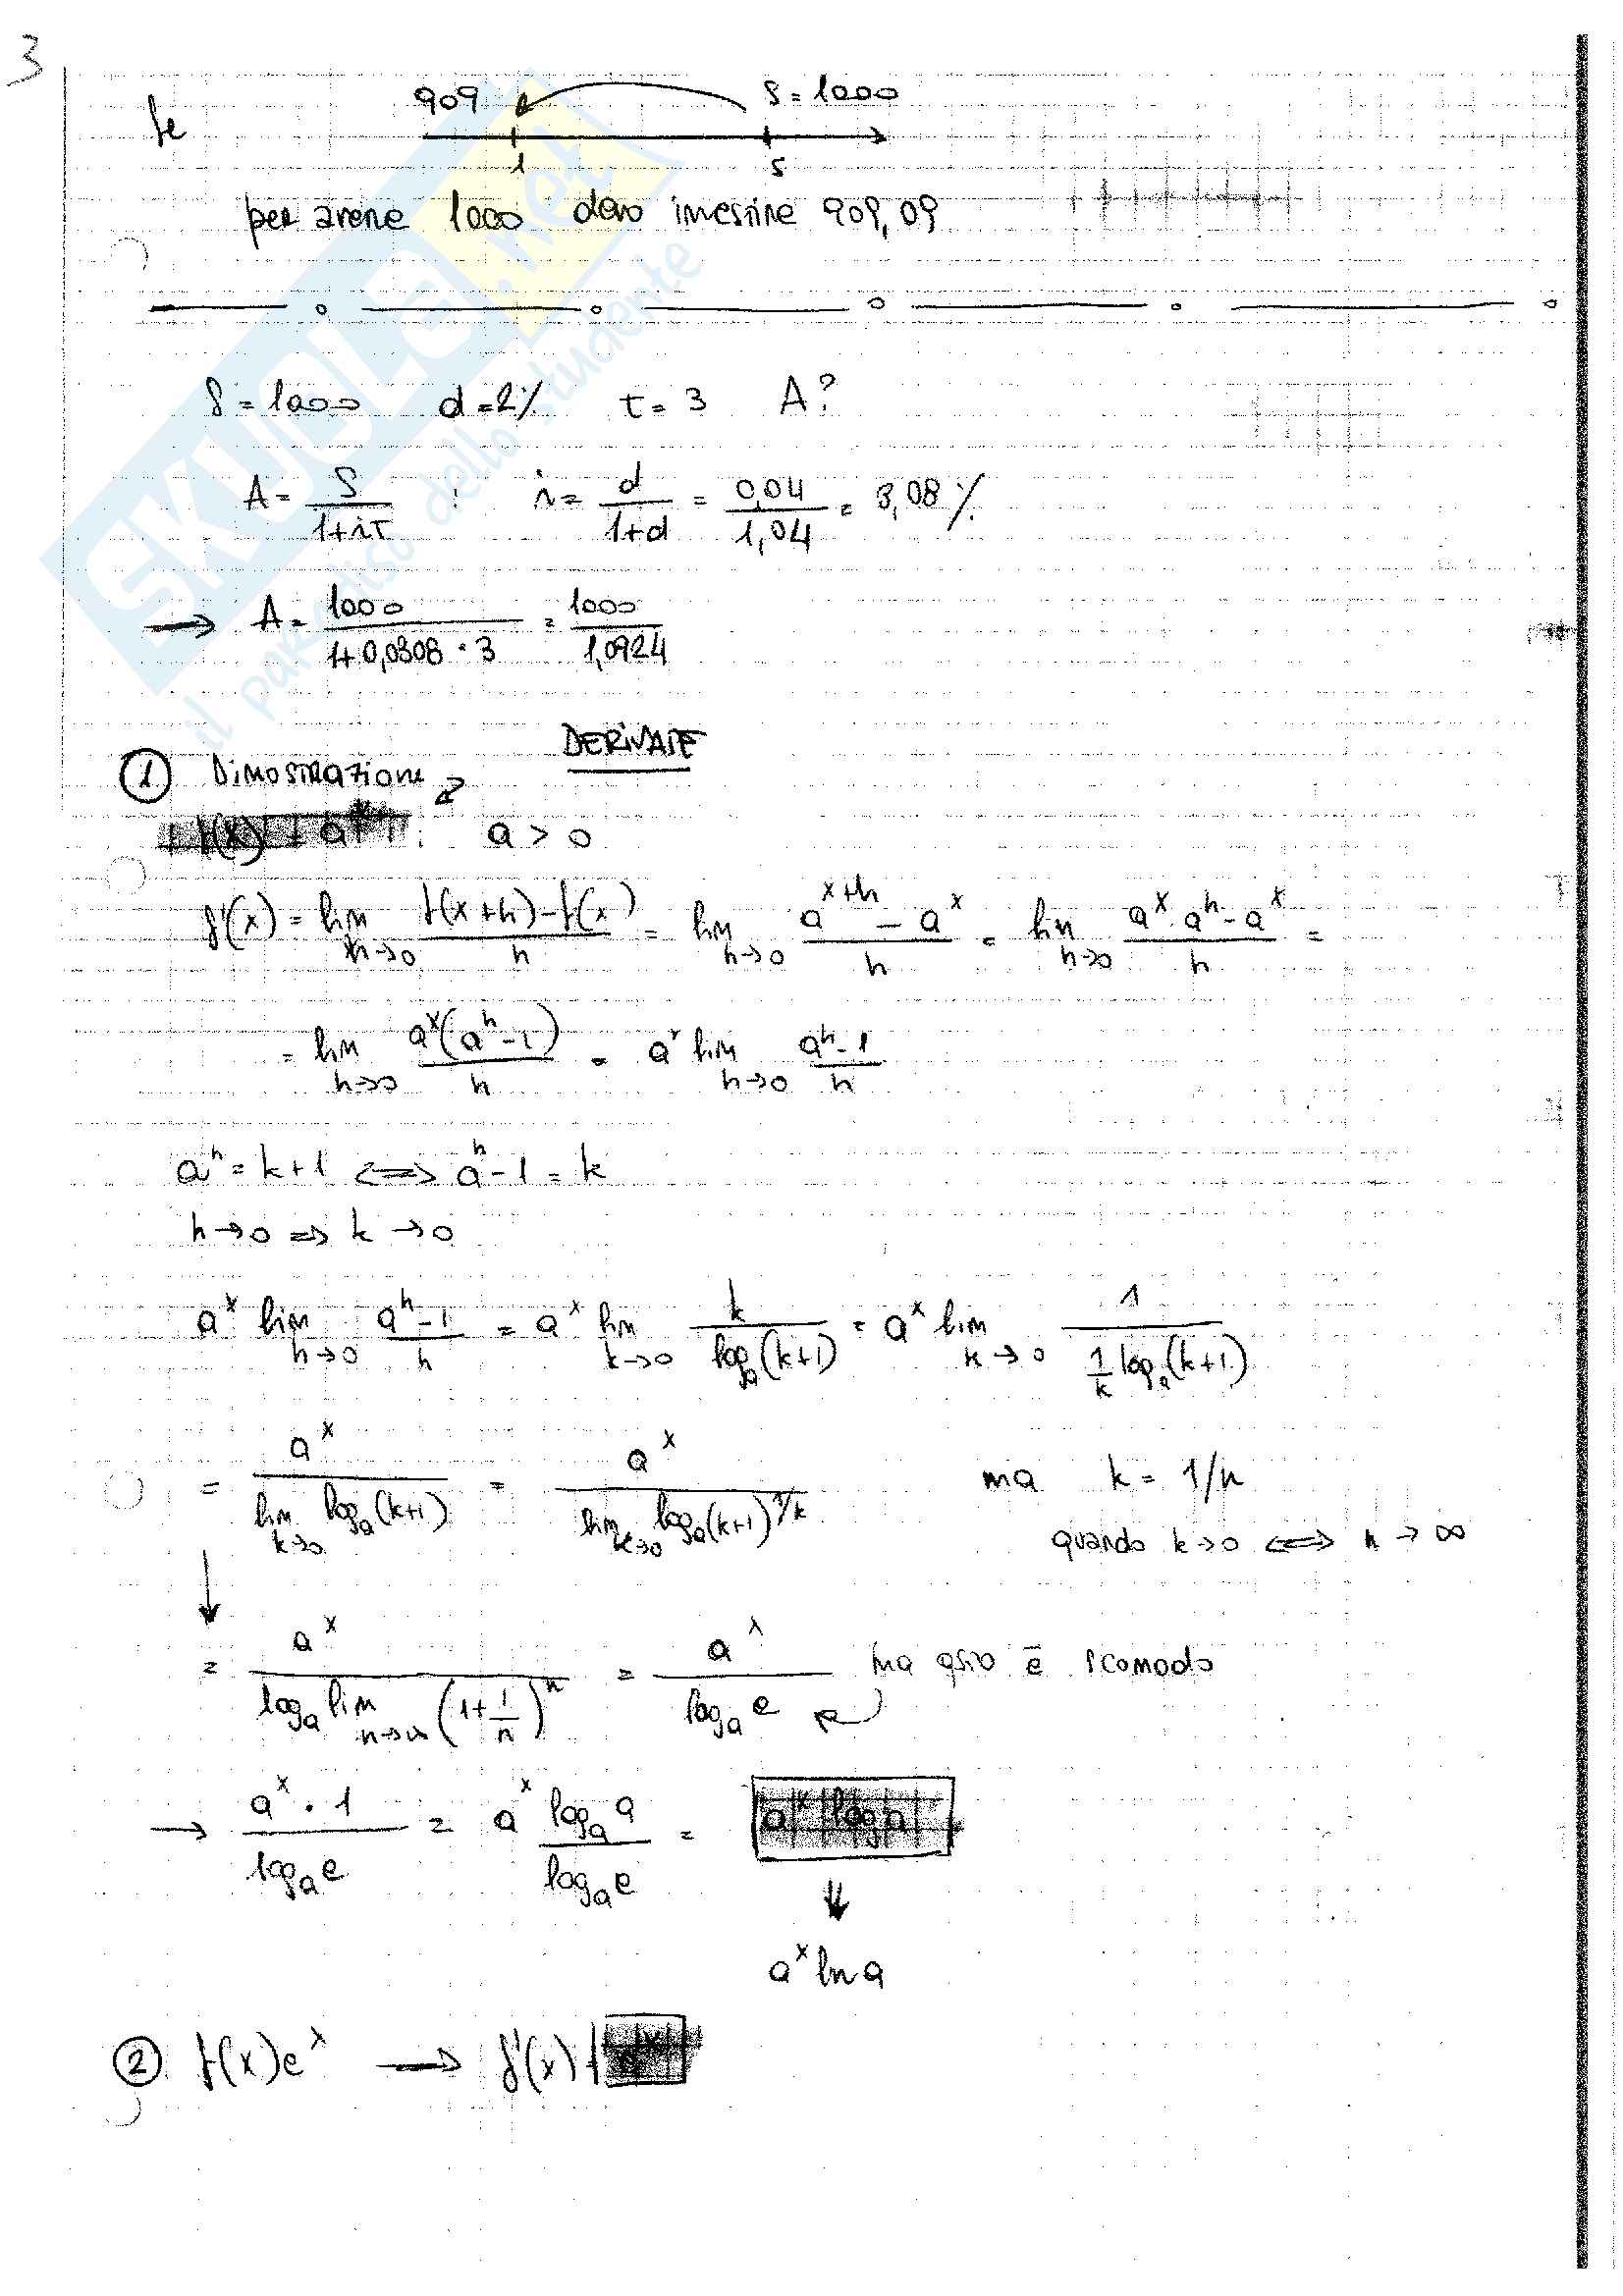 3
fe 909 S = 1000
1 5
per avere 1000 devo investire 909,09
S = 1000 d = 2% t = 3 A?
A = S/(1+it) : i = d/(1+d) = 0,04/1,04 = 3,08%
→ A = 1000/(1+0,0308 · 3) = 1000/1,0924
DERIVATE
① Dimostrazione
f(x) = a^x a > 0
f'(x) = lim h→0 (f(x+h) - f(x))/h = lim h→0 (a^(x+h) - a^x)/h = lim h→0 (a^x · a^h - a^x)/h =
= lim h→0 a^x(a^h - 1)/h = a^x lim h→0 (a^h - 1)/h
a^h = k+1 ⟺ a^h - 1 = k
h→0 ⇒ k→0
a^x lim h→0 (a^h - 1)/h = a^x lim k→0 k/log_a(k+1) = a^x lim k→0 1/(1/k log_a(k+1))
= a^x/(lim k→0 log_a(k+1)) = a^x/(lim k→0 log_a(k+1)^(1/k)) ma k = 1/n
quando k→0 ⟺ n→∞
= a^x/(log_a lim n→∞ (1+1/n)^n) = a^x/log_a e ma qsto è scomodo
→ a^x · 1/log_a e = a^x log_a a/log_a e = a^x log a
⇓
a^x ln a
② f(x) e^x → f'(x) = e^x
SKUOLA.net
il paradiso dello studente